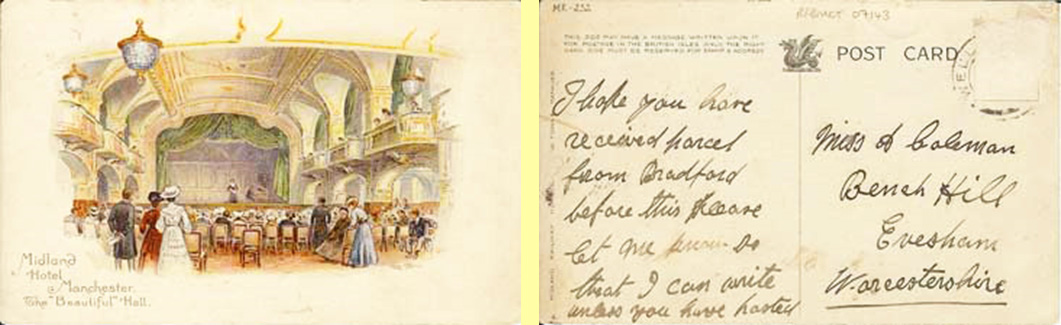 Midland
Hotel
Manchester.
The "Beautiful" Hall.
MR-252
07143
THIS BOX MAY HAVE A MESSAGE WRITTEN UPON IT
FOR POSTAGE IN THE BRITISH ISLES ONLY THE RIGHT
HAND SIDE MUST BE RESERVED FOR STAMP & ADDRESS
POST CARD
I hope you have
received parcel
from Bradford
before this Please
let me know so
that I can write
unless you have posted
Miss A Coleman
Bench Hill
Evesham
Worcestershire